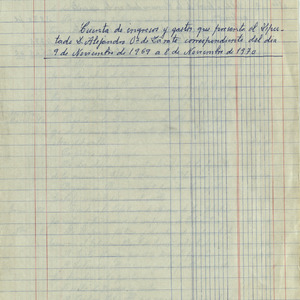 Cuenta de ingresos y gastos que presenta el Dipu-
tado D. Alejandro Dº de Zárate correspondiente del dia
9 de Noviembre de 1969 a 8 de Noviembre de 1970